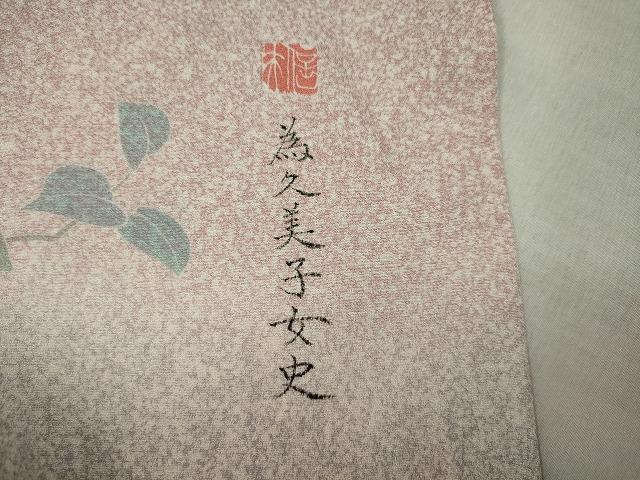 為久美子女史